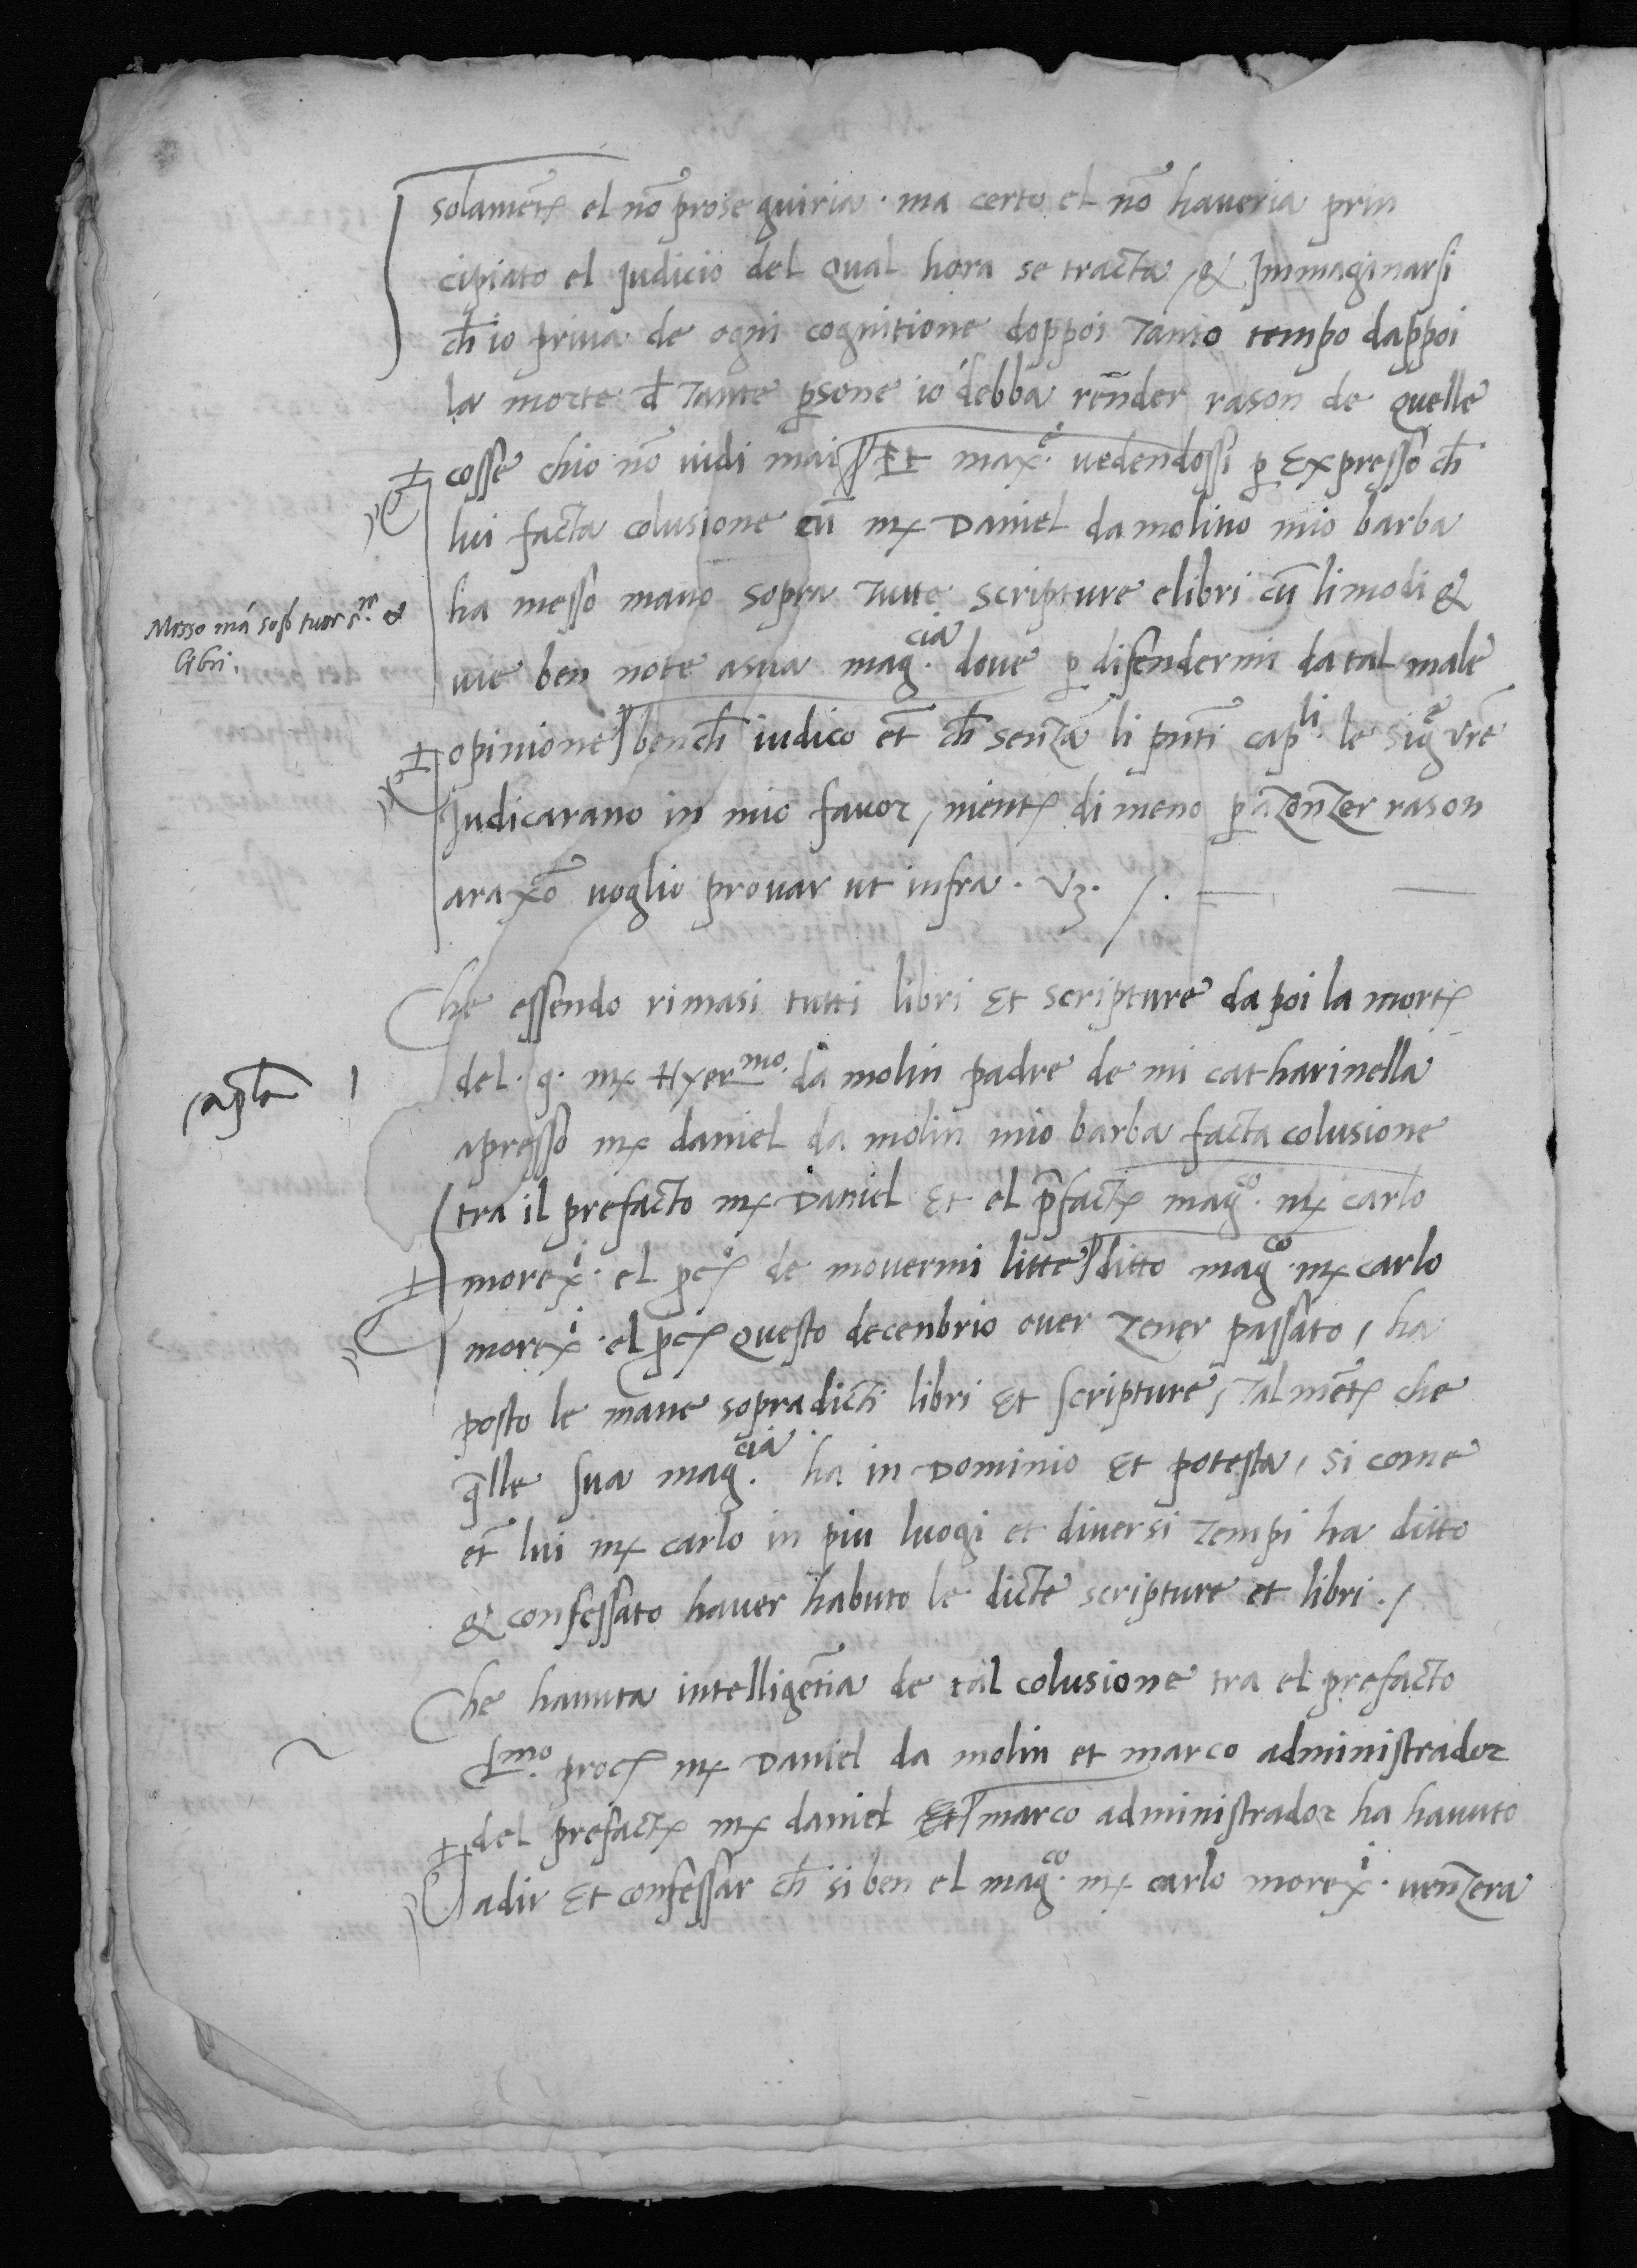 solamēte el nō prosequiria. ma certo el nō haveria prin
cipiato el Judicio del qual hora se tracta, & Immaginarsi
ch̄ io priva de ogni cognitione doppoi tanto tempo dappoi
la morte d̄ tante ꝑsone io debba rēnder rason de quelle
cosse chio nō vidi mai Et maxe. vedendossi ꝑ expresso ch̄
lui facta colusione cū mẹ Daniel da molino mio barba
ha messo mano sopra tutte scripture e libri cū li modi &
Messo mā soꝑ tutte sre. &
libri.
vie ben note a sua magcia. dove ꝑ difendermi da tal male
opinione bench̄ iudico et̄ ch̄ senza li pn̄ti capli. le sige vr̄e
Judicarano in mio favor, niente di meno ꝑ azonzer rason
a raxō voglio provar ut infra. vz. /.
Che essendo rimasi tutti libri et scripture da poi la morte
del. q. mẹ Hyermo. da molin padre de mi catharinella
caplo 1
apresso mẹ daniel da molin mio barba facta colusione
tra il prefacto mẹ Daniel et el p̄facto magco. mẹ carlo
morexi. el ꝑcō de movermi litte ditto magco. mẹ carlo
morexi. el ꝑcō questo decenbrio over zener passato, ha
posto le mane sopradicti libri et scripture, talmēte che
q̄lle sua magcia. ha in Dominio et potesta, si come
et̄ lui mẹ carlo in piu luogi et diversi tempi ha ditto
& confessato haver habuto le dicte scripture et libri./
Che havuta intelligētia de tal colusione tra el prefacto
mẹ Daniel da molin et marco administrador
del prefacto mẹ daniel Et marco administrador ha havuto
adir et confessar ch̄ si ben el magco. mẹ carlo morexi. venzera